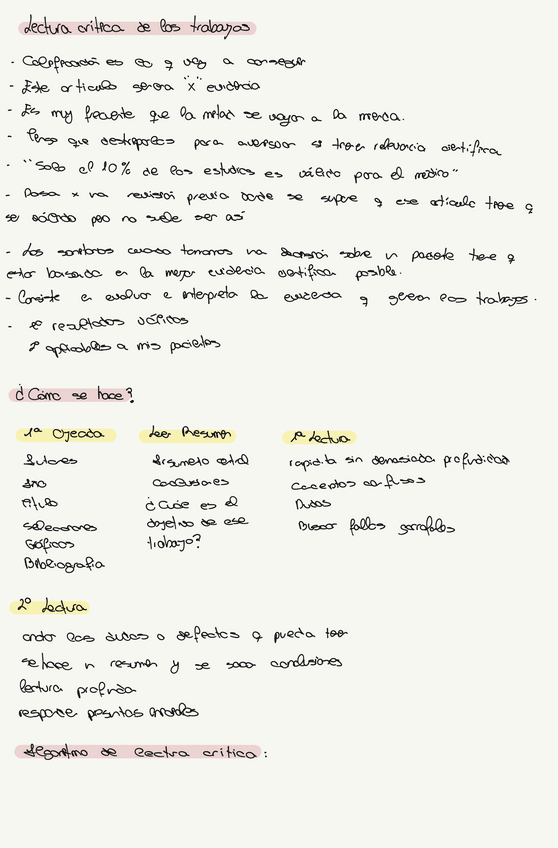 Lectura crítica de los trabajos
- es lo q voy a conseguir
- Este articulo genera "x" evidencia
- Es muy frecuente que la mitad se vayan a la mierda.
- Tengo que para si tienen relevancia científica
- "Solo el 10% de los estudios es válido para el médico"
- Pasa x una revisión previa donde se supone q ese articulo tiene q
ser válido pero no suele ser así
- Los cuando tomamos una decisión sobre un paciente tiene q
estar basada en la mejor evidencia científica posible.
- Consiste en evaluar e interpretar la evidencia q generan los trabajos.
- 1º resultados válidos
2º aplicables a mis pacientes
¿Cómo se hace?
1ª Ojeada
Autores
Año
Título
Selecciones
Gráficos
Bibliografía
Leer Resumen
Argumento central
Conclusiones
¿Cuál es el
objetivo de ese
trabajo?
1ª Lectura
rapidita sin demasiada profundidad
Conceptos confusos
Dudas
Buscar fallos garrafales
2º Lectura
anotar las dudas o defectos q pueda tener
se hace un resumen y se saca conclusiones
lectura profunda
responde preguntas
Algoritmo de lectura crítica: